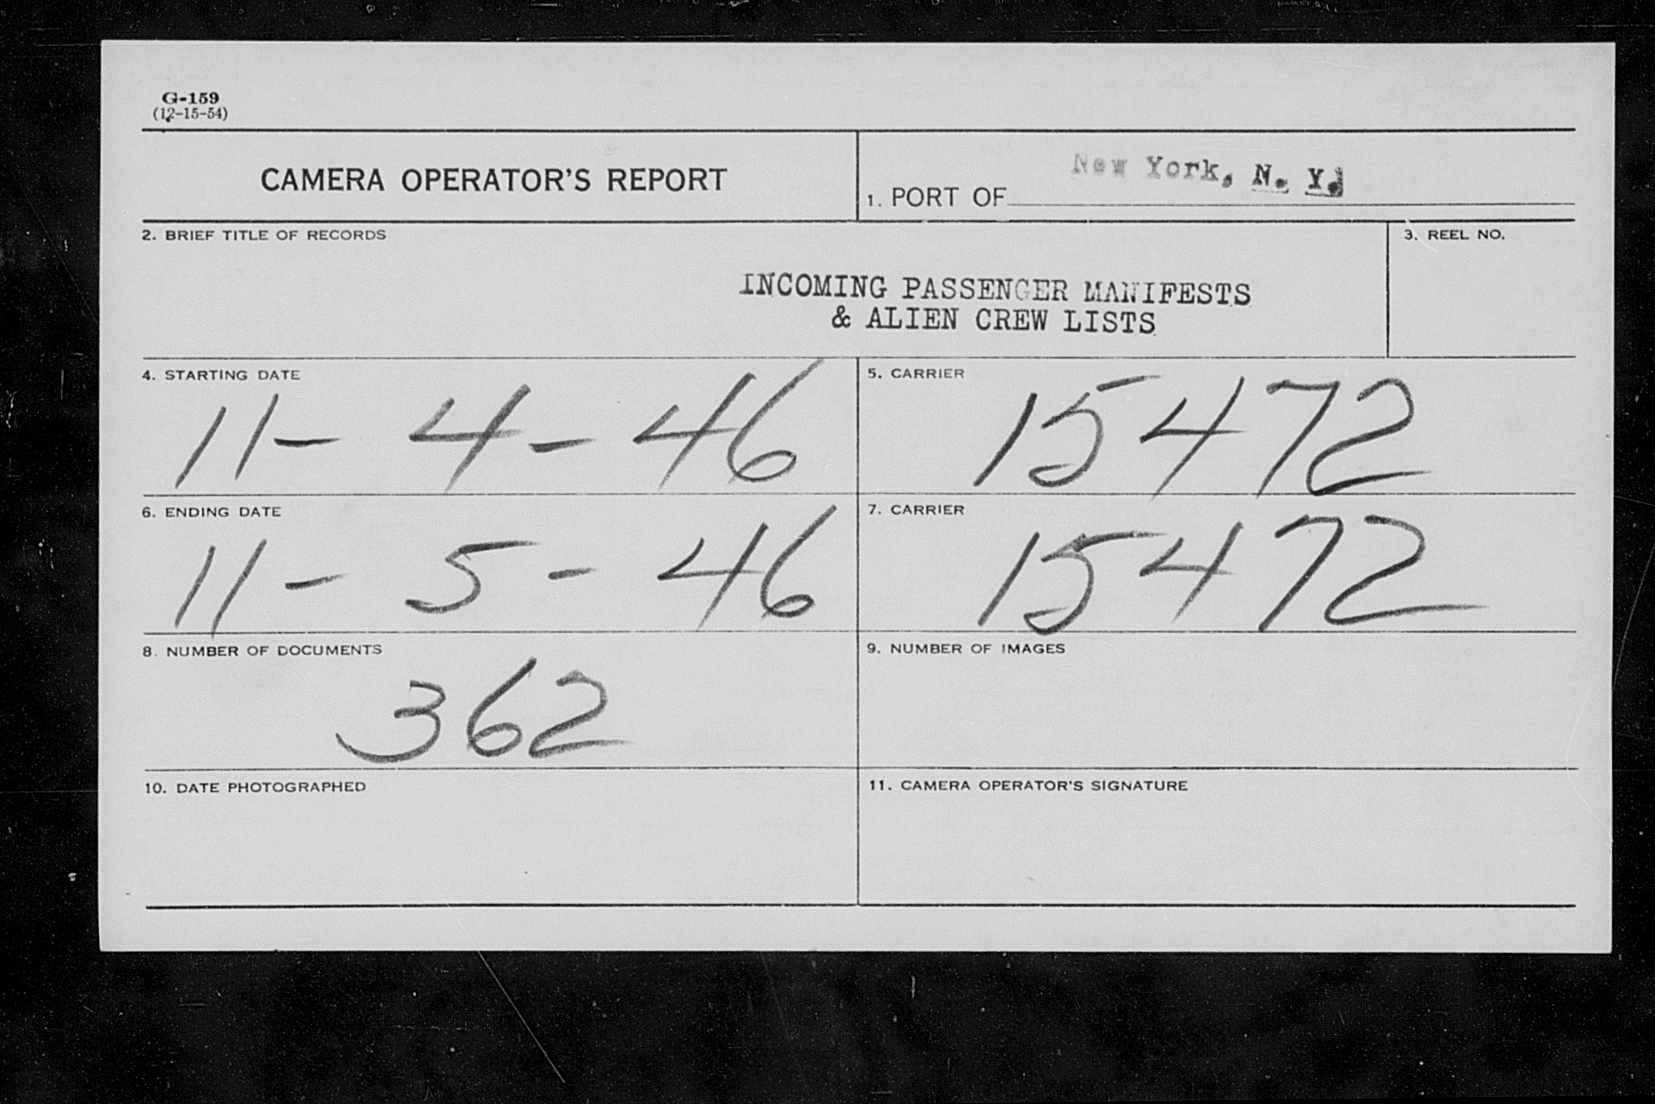 G-159
(12-15-54)
CAMERA OPERATOR'S REPORT
1. PORT OF New York, N. Y.
2. BRIEF TITLE OF RECORDS
3. REEL NO.
INCOMING PASSENGER MANIFESTS
& ALIEN CREW LISTS
4. STARTING DATE
11-4-46
5. CARRIER
15472
6. ENDING DATE
11-5-46
7. CARRIER
15472
8. NUMBER OF DOCUMENTS
362
9. NUMBER OF IMAGES
10. DATE PHOTOGRAPHED
11. CAMERA OPERATOR'S SIGNATURE